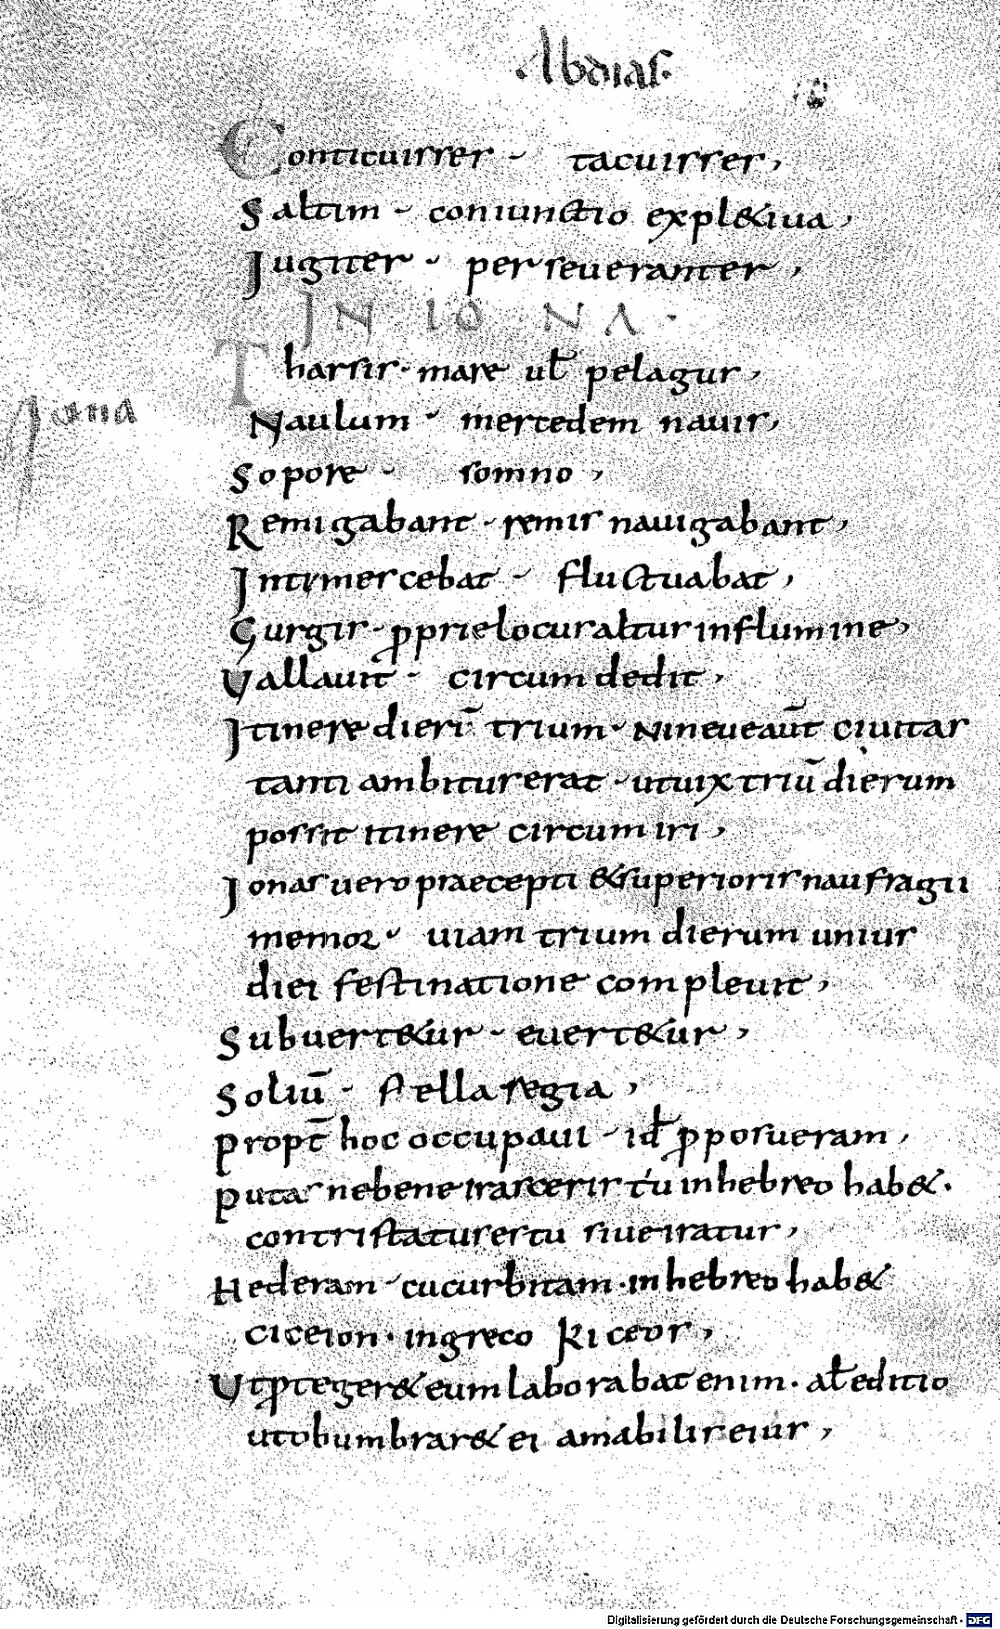 ·Abdias·
Conticuisses - tacuisses,
Saltim - coniunctio expl&iua,
Jugiter - perseueranter,
IN IONA·
Tharsis· mare uł pelagus,
Jona
Naulum - mercedem nauis,
Sopore - somno,
Remigabant - remis nauigabant,
Intumescebat - fluctuabat,
Gurgis - pprie locus altus in flumine,
Uallauit - circumdedit,
Itinere dierū trium· Nineue aūt ciuitas
tanti ambitus erat - ut uix triū dierum
possit itinere circumiri,
Jonas uero praecepti & superioris naufragii
memor - uiam trium dierum unius
diei festinatione compleuit,
Subuert&ur - euert&ur,
Soliū - sella regia,
Propt̄ hoc occupaui - id p̱posueram,
Putasne bene irasceris tu in hebreo hab&·
contristatus es tu siue iratus,
Hederam - cucurbitam· in hebreo hab&
ciceion· in greco kiceos,
Ut pteger& eum laborabat enim· ał editio
ut obumbrar& ei a malis eius,
Digitalisierung gefördert durch die Deutsche Forschungsgemeinschaft - DFG